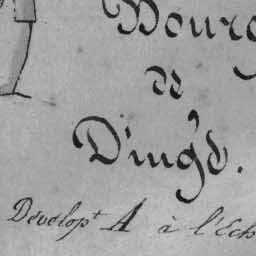 Bourg
de
Dingé.
Develop.t A à l'Ech